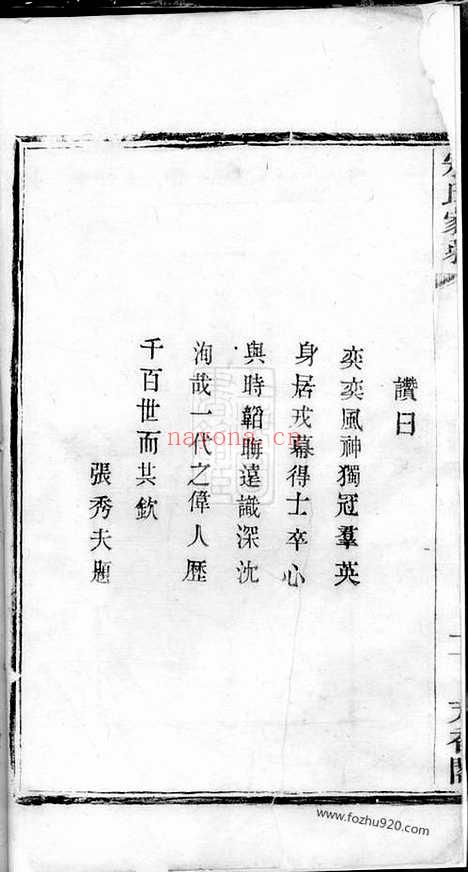 讚曰
奕奕風神獨冠羣英
身居戎幕得士卒心
與時韜晦遠識深沈
洵哉一代之偉人歷
千百世而共欽
張秀夫題
氏家
nayong.cn
www.fozhu920.com